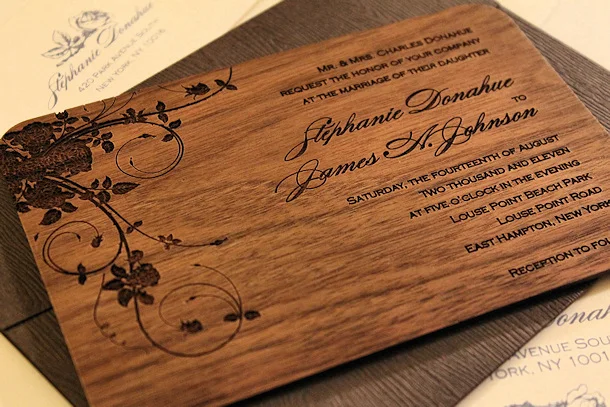 Stéphanie Donahue
420 Park Avenue South
New York, NY 10016
Mr. & Mrs. Charles Donahue
request the honor of your company
at the marriage of their daughter
Stéphanie Donahue
to
James A. Johnson
Saturday, the fourteenth of August
Two thousand and eleven
at five o'clock in the evening
Louse Point Beach Park
Louse Point Road
East Hampton, New York
Reception to fol
Avenue Sou
York, NY 100